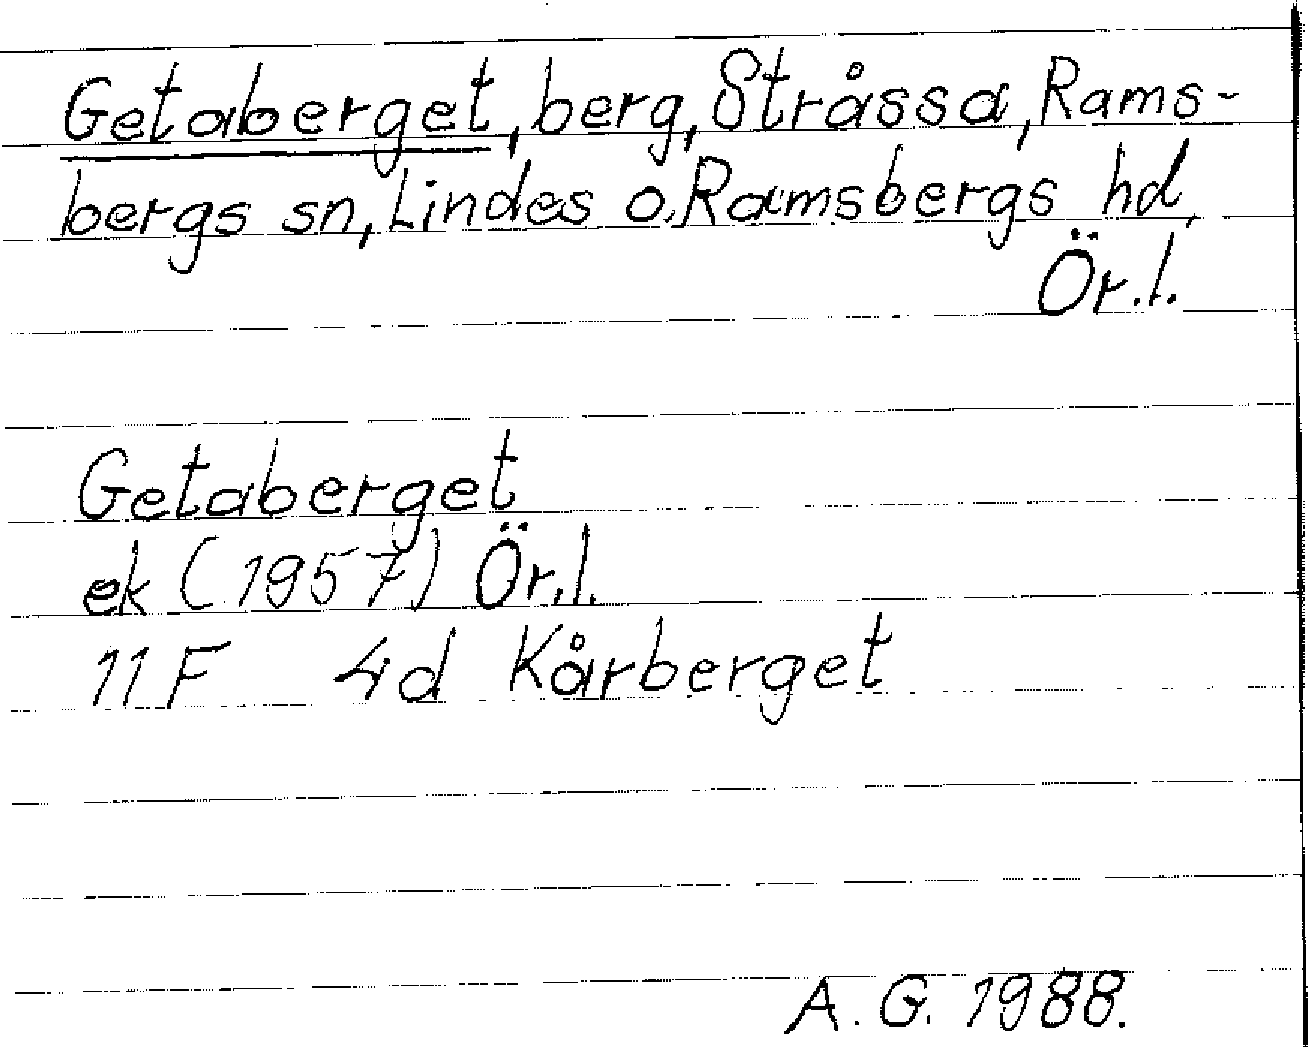 Getaberget, berg, Stråssa, Rams-
bergs sn, Lindes o. Ramsbergs hd,
Ör.l.
Getaberget
ek (1957) Ör.l.
11F 4d Kårberget
A. G. 1988.